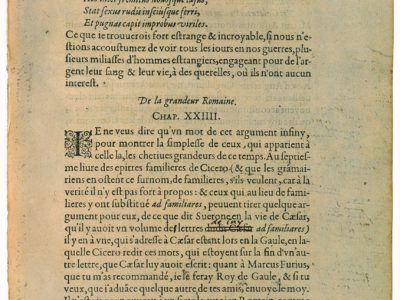 Stat sexus rudis insciusque ferri,
Et pugnas capit improbus viriles.
Ce que ie trouuerois fort estrange & incroyable, si nous n'e-
stions accoustumez de voir tous les iours en nos guerres, plu-
sieurs miliasses d'hommes estrangiers, engageant pour de l'ar-
gent leur sang & leur vie, à des querelles, où ils n'ont aucun
interest.
De la grandeur Romaine.
CHAP. XXIIII.
IE NE veus dire qu'vn mot de cet argument infiny,
pour montrer la simplesse de ceux, qui apparient à
celle la, les chetiues grandeurs de ce temps. Au septies-
me liure des epitres familieres de Cicero (& que les gramai-
riens en ostent ce surnom, de familieres, s'ils veulent, car à la
verité il n'y est pas fort à propos: & ceux qui au lieu de familie-
res y ont substitué ad familiares, peuuent tirer quelque ar-
gument pour eux, de ce que dit Suetone en la vie de Cæsar,
qu'il y auoit vn volume de lettres ad familiares)
il y en à vne, qui s'adresse à Cæsar estant lors en la Gaule, en la-
quelle Cicero redit ces mots, qui estoyent sur la fin d'vn'au-
tre lettre, que Cæsar luy auoit escrit: quant à Marcus Furius,
que tu m'as recommandé, ie le feray Roy de Gaule, & si tu
veus, que i'aduâce quelque autre de tes amis, enuoye le moy.